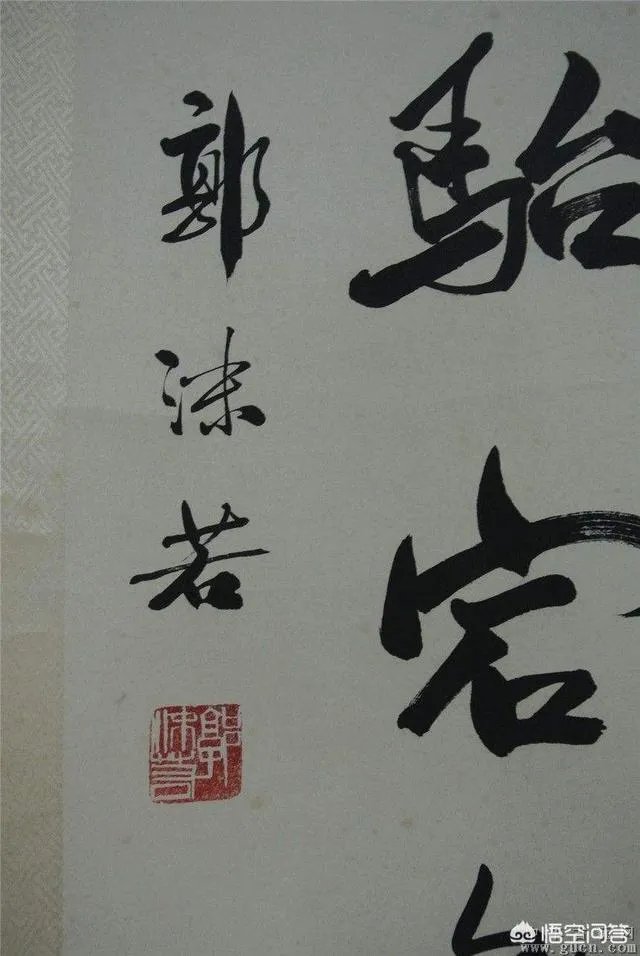 駘宕
郭沫若
郭沫若
悟空问答
www.gucn.com